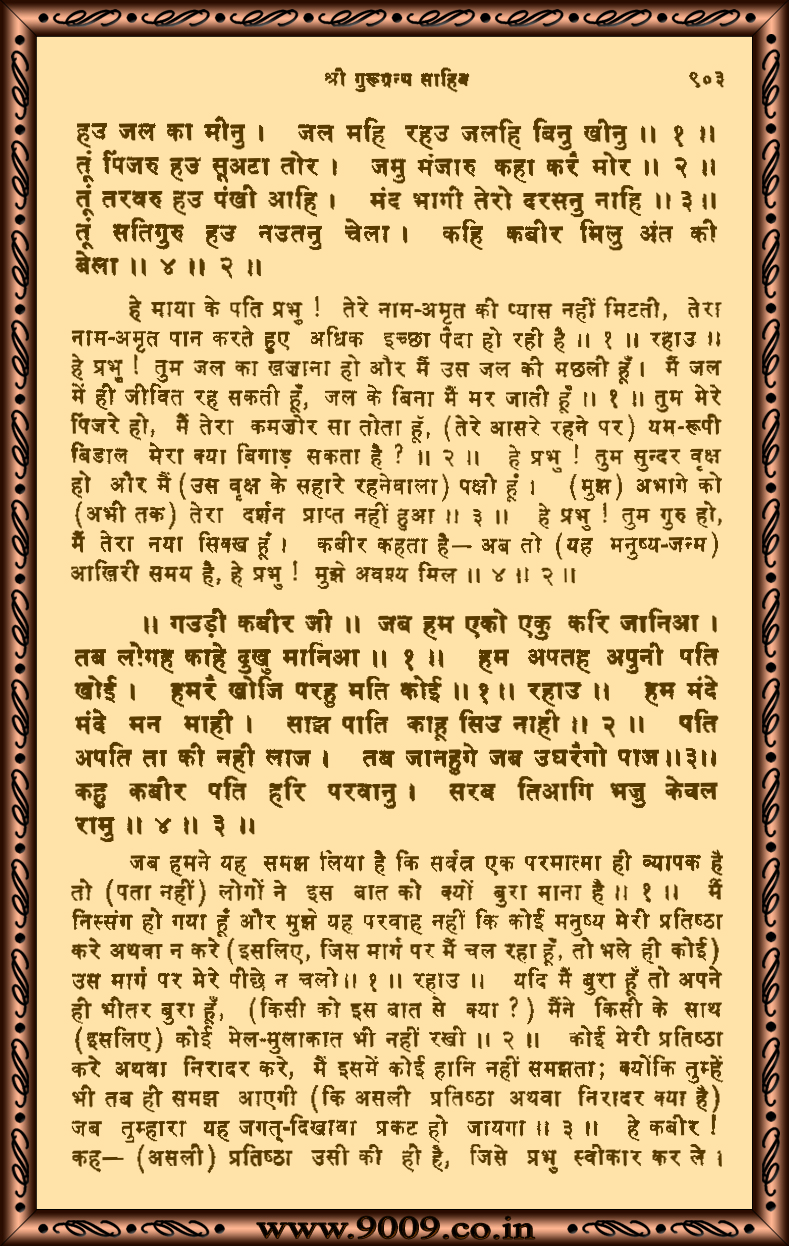 श्री गुरूग्रन्थ साहिब ९०३
हउ जल का मीनु । जल महि रहउ जलहि बिनु खीनु ॥ १ ॥
तूं पिंजरु हउ सूअटा तोर । जमु मंजारु कहा करै मोर ॥ २ ॥
तूं तरवरु हउ पंखी आहि । मंद भागी तेरो दरसनु नाहि ॥ ३ ॥
तूं सतिगुरु हउ नउतनु चेला । कहि कबीर मिलु अंत की
बेला ॥ ४ ॥ २ ॥
हे माया के पति प्रभु ! तेरे नाम-अमृत की प्यास नहीं मिटती, तेरा
नाम-अमृत पान करते हुए अधिक इच्छा पैदा हो रही है ॥ १ ॥ रहाउ ॥
हे प्रभु ! तुम जल का खज़ाना हो और मैं उस जल की मछली हूँ । मैं जल
में ही जीवित रह सकती हूँ, जल के बिना मैं मर जाती हूँ ॥ १ ॥ तुम मेरे
पिंजरे हो, मैं तेरा कमज़ोर सा तोता हूँ, (तेरे आसरे रहने पर) यम-रूपी
बिडाल मेरा क्या बिगाड़ सकता है ? ॥ २ ॥ हे प्रभु ! तुम सुन्दर वृक्ष
हो और मैं (उस वृक्ष के सहारे रहनेवाला) पक्षी हूं । (मुझ) अभागे को
(अभी तक) तेरा दर्शन प्राप्त नहीं हुआ ॥ ३ ॥ हे प्रभु ! तुम गुरु हो,
मैं तेरा नया सिक्ख हूँ । कबीर कहता है— अब तो (यह मनुष्य-जन्म)
आखिरी समय है, हे प्रभु ! मुझे अवश्य मिल ॥ ४ ॥ २ ॥
॥ गउड़ी कबीर जी ॥ जब हम एको एकु करि जानिआ ।
तब लोगह काहे दुखु मानिआ ॥ १ ॥ हम अपतह अपुनी पति
खोई । हमरै खोजि परहु मति कोई ॥ १ ॥ रहाउ ॥ हम मंदे
मंदे मन माही । साझ पाति काहू सिउ नाही ॥ २ ॥ पति
अपति ता की नही लाज । तब जानहुगे जब उघरैगो पाज ॥३॥
कहु कबीर पति हरि परवानु । सरब तिआगि भजु केवल
रामु ॥ ४ ॥ ३ ॥
जब हमने यह समझ लिया है कि सर्वत्र एक परमात्मा ही व्यापक है
तो (पता नहीं) लोगों ने इस बात को क्यों बुरा माना है ॥ १ ॥ मैं
निस्संग हो गया हूँ और मुझे यह परवाह नहीं कि कोई मनुष्य मेरी प्रतिष्ठा
करे अथवा न करे (इसलिए, जिस मार्ग पर मैं चल रहा हूँ, तो भले ही कोई)
उस मार्ग पर मेरे पीछे न चलो ॥ १ ॥ रहाउ ॥ यदि मैं बुरा हूँ तो अपने
ही भीतर बुरा हूँ, (किसी को इस बात से क्या ?) मैंने किसी के साथ
(इसलिए) कोई मेल-मुलाकात भी नहीं रखी ॥ २ ॥ कोई मेरी प्रतिष्ठा
करे अथवा निरादर करे, मैं इसमें कोई हानि नहीं समझता; क्योंकि तुम्हें
भी तब ही समझ आएगी (कि असली प्रतिष्ठा अथवा निरादर क्या है)
जब तुम्हारा यह जगत्-दिखावा प्रकट हो जायगा ॥ ३ ॥ हे कबीर !
कह— (असली) प्रतिष्ठा उसी की ही है, जिसे प्रभु स्वीकार कर ले ।
www.9009.co.in